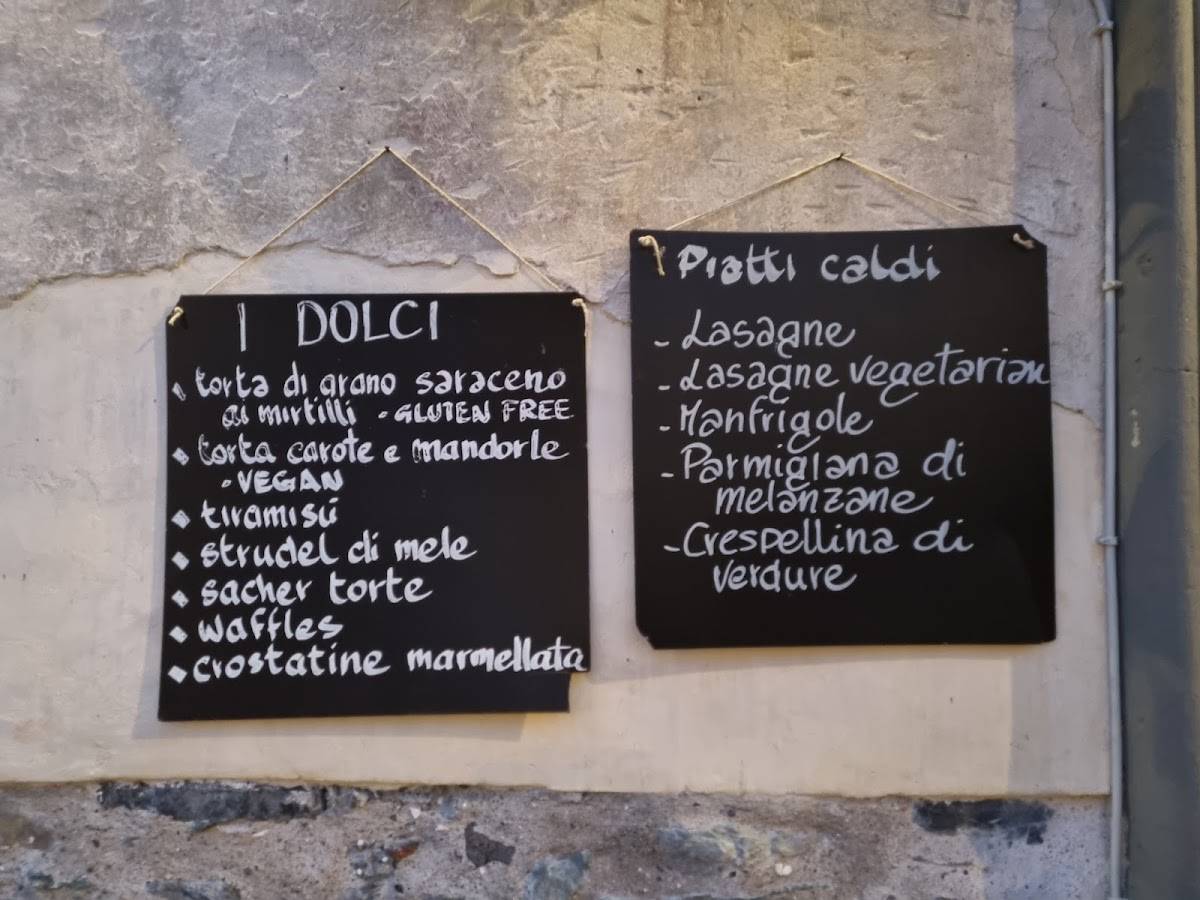 I DOLCI
torta di grano saraceno
ai mirtilli - GLUTEN FREE
torta carote e mandorle
- VEGAN
tiramisú
strudel di mele
sacher torte
waffles
crostatine marmellata
Piatti caldi
- Lasagne
- Lasagne vegetarian
- Manfrigole
- Parmigiana di
melanzane
- Crespellina di
verdure